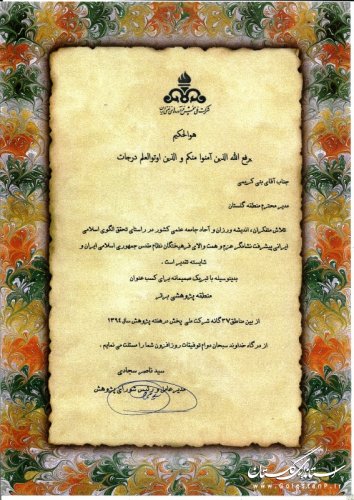 شرکت ملی پخش فرآورده‌های نفتی ایران
هوالحکیم
یرفع الله الذین آمنوا منکم و الذین اوتوالعلم درجات
جناب آقای بنی کریمی
مدیر محترم منطقه گلستان
تلاش متفکران، اندیشه ورزان و آحاد جامعه علمی کشور در راستای تحقق الگوی اسلامی
ایرانی پیشرفت نشانگر عزم و همت والای فرهیختگان نظام مقدس جمهوری اسلامی ایران و
شایسته تقدیر است .
بدینوسیله با تبریک صمیمانه برای کسب عنوان
منطقه پژوهشی برتر
از بین مناطق ۳۷ گانه شرکت ملی پخش در هفته پژوهش سال ۱۳۹۴
از درگاه خداوند سبحان دوام توفیقات روز افزون شما را مسئلت می نمایم .
سید ناصر سجادی
مدیرعامل و رئیس شورای پژوهش
www.GolestanP.ir